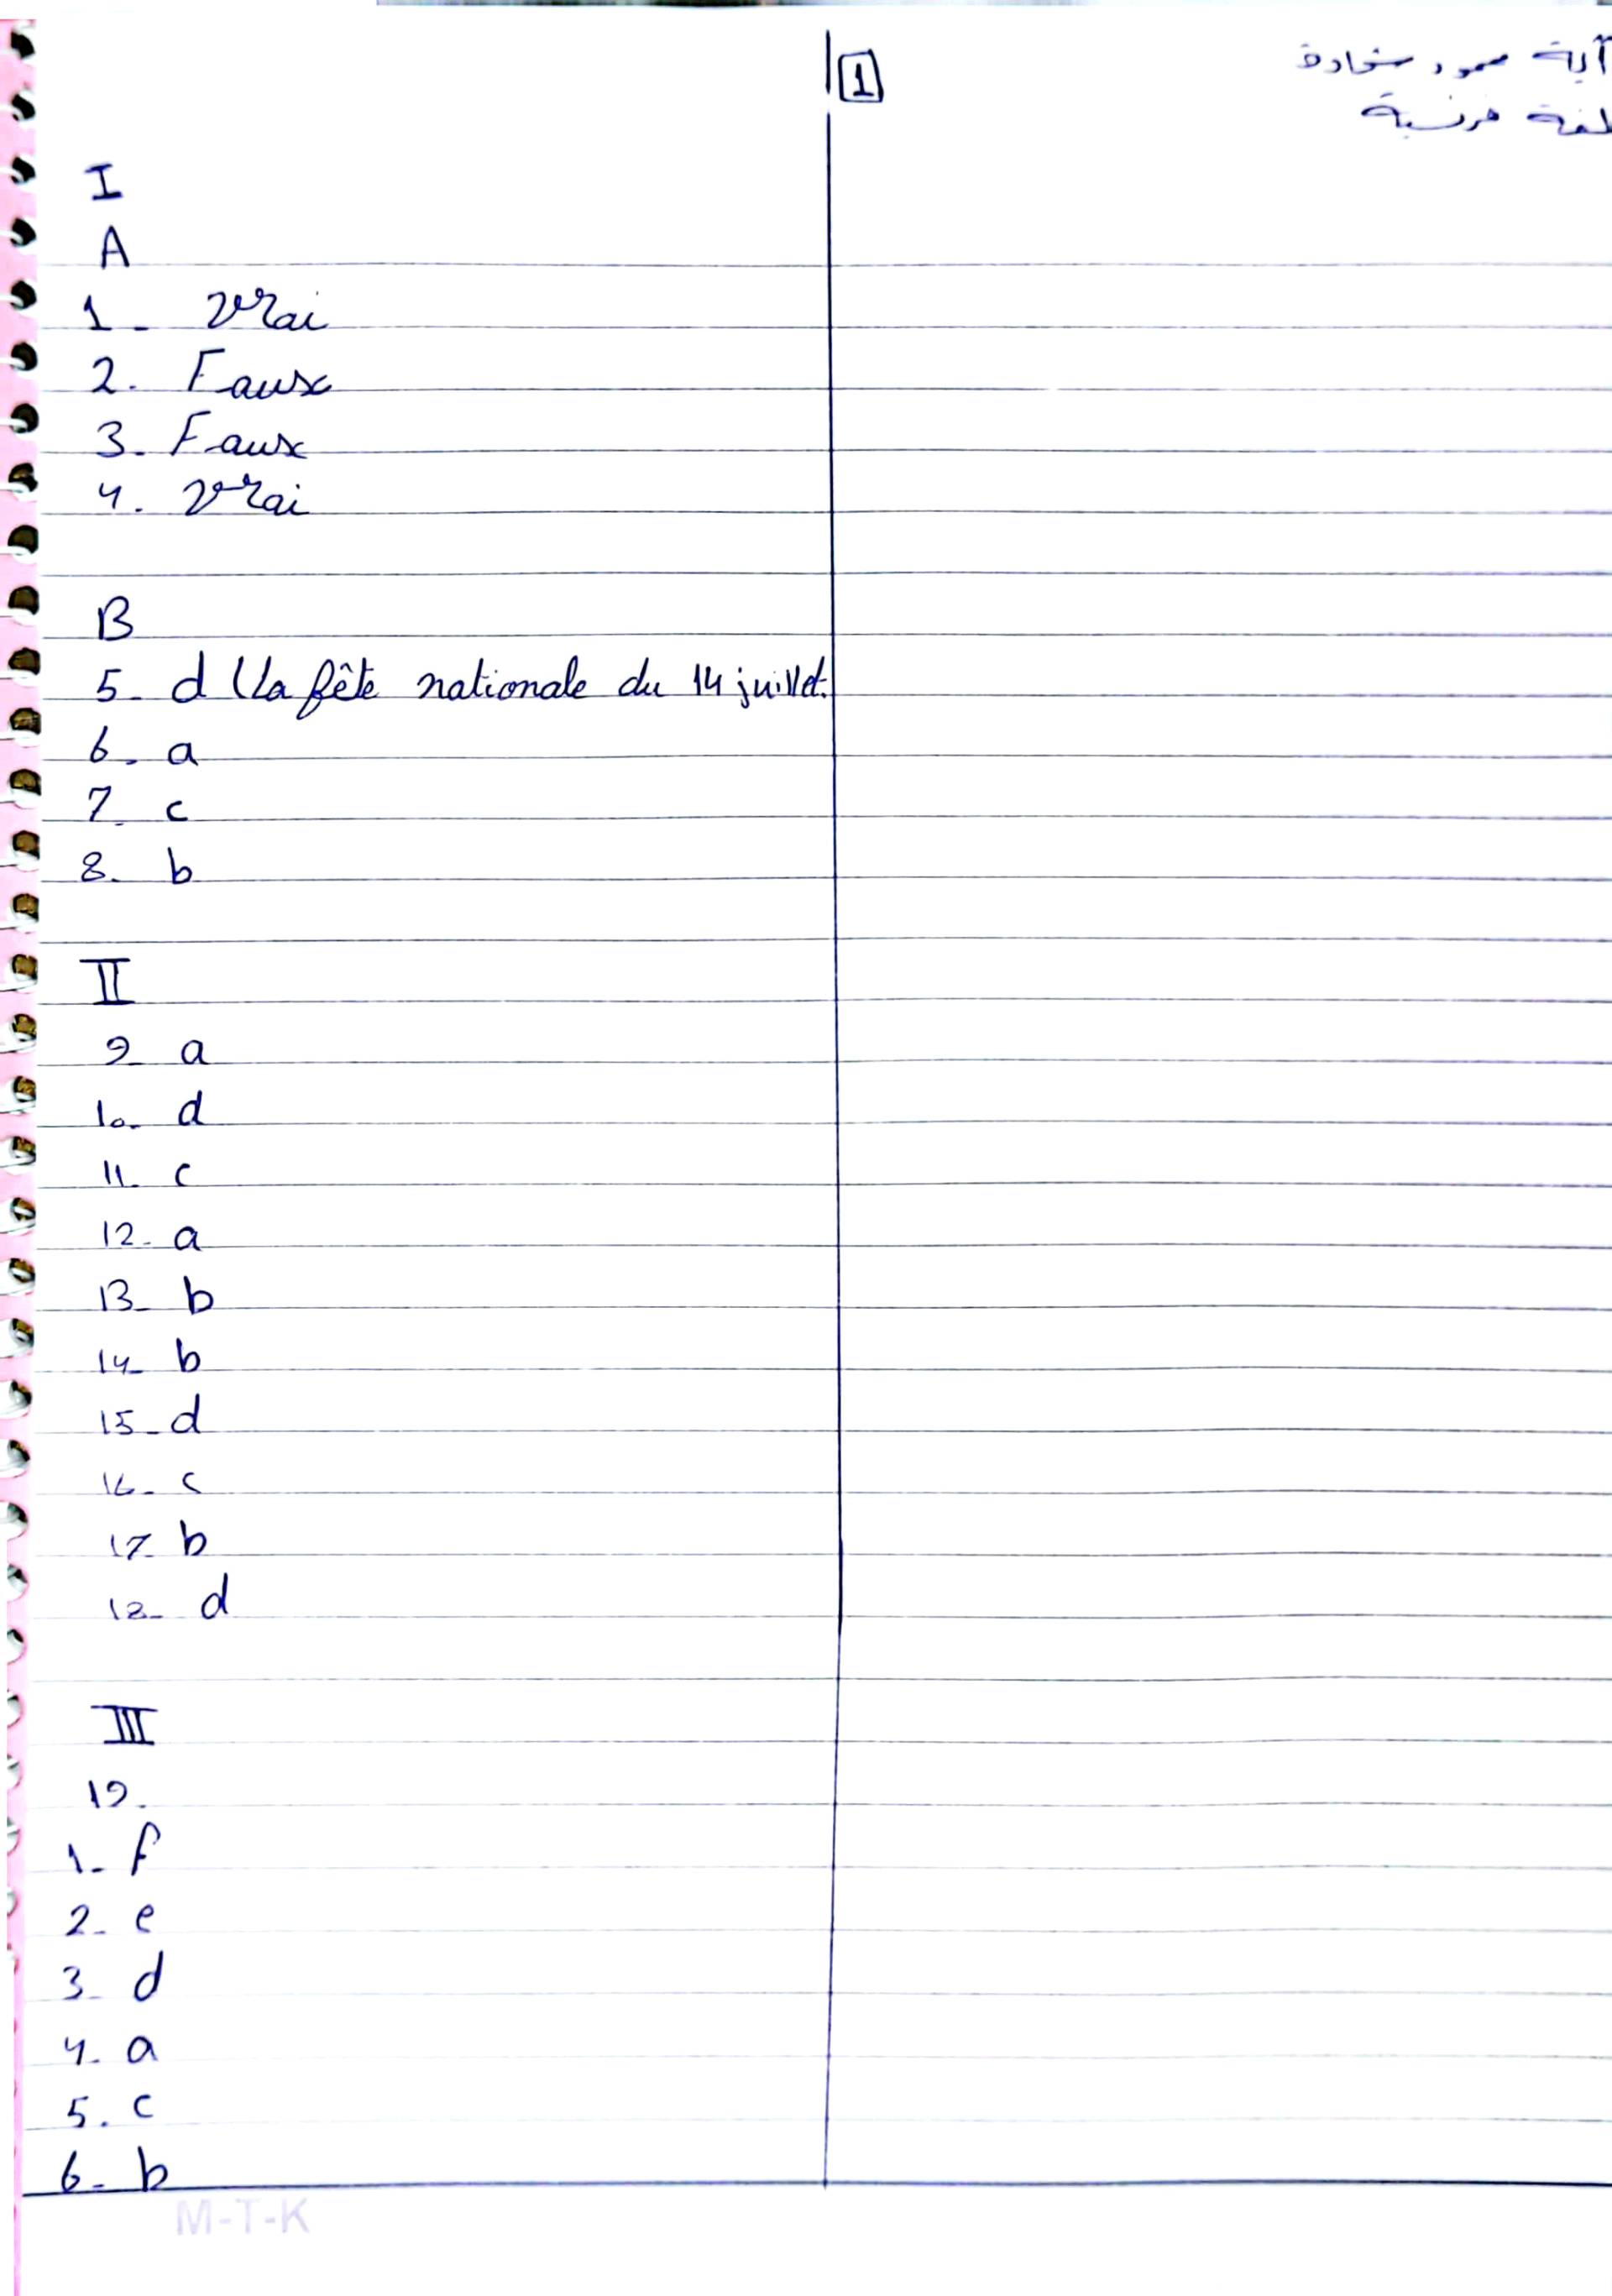 آية محمود شحادة
لغة فرنسية
1
I
A
1- Vrai
2. Faux
3- Faux
4. Vrai
B
5- d (La fête nationale du 14 juillet.
6. a
7. c
8- b
II
9- a
10- d
11- c
12- a
13- b
14- b
15- d
16- c
17- b
18- d
III
19.
1- f
2- e
3- d
4- a
5. c
6- b
M-T-K